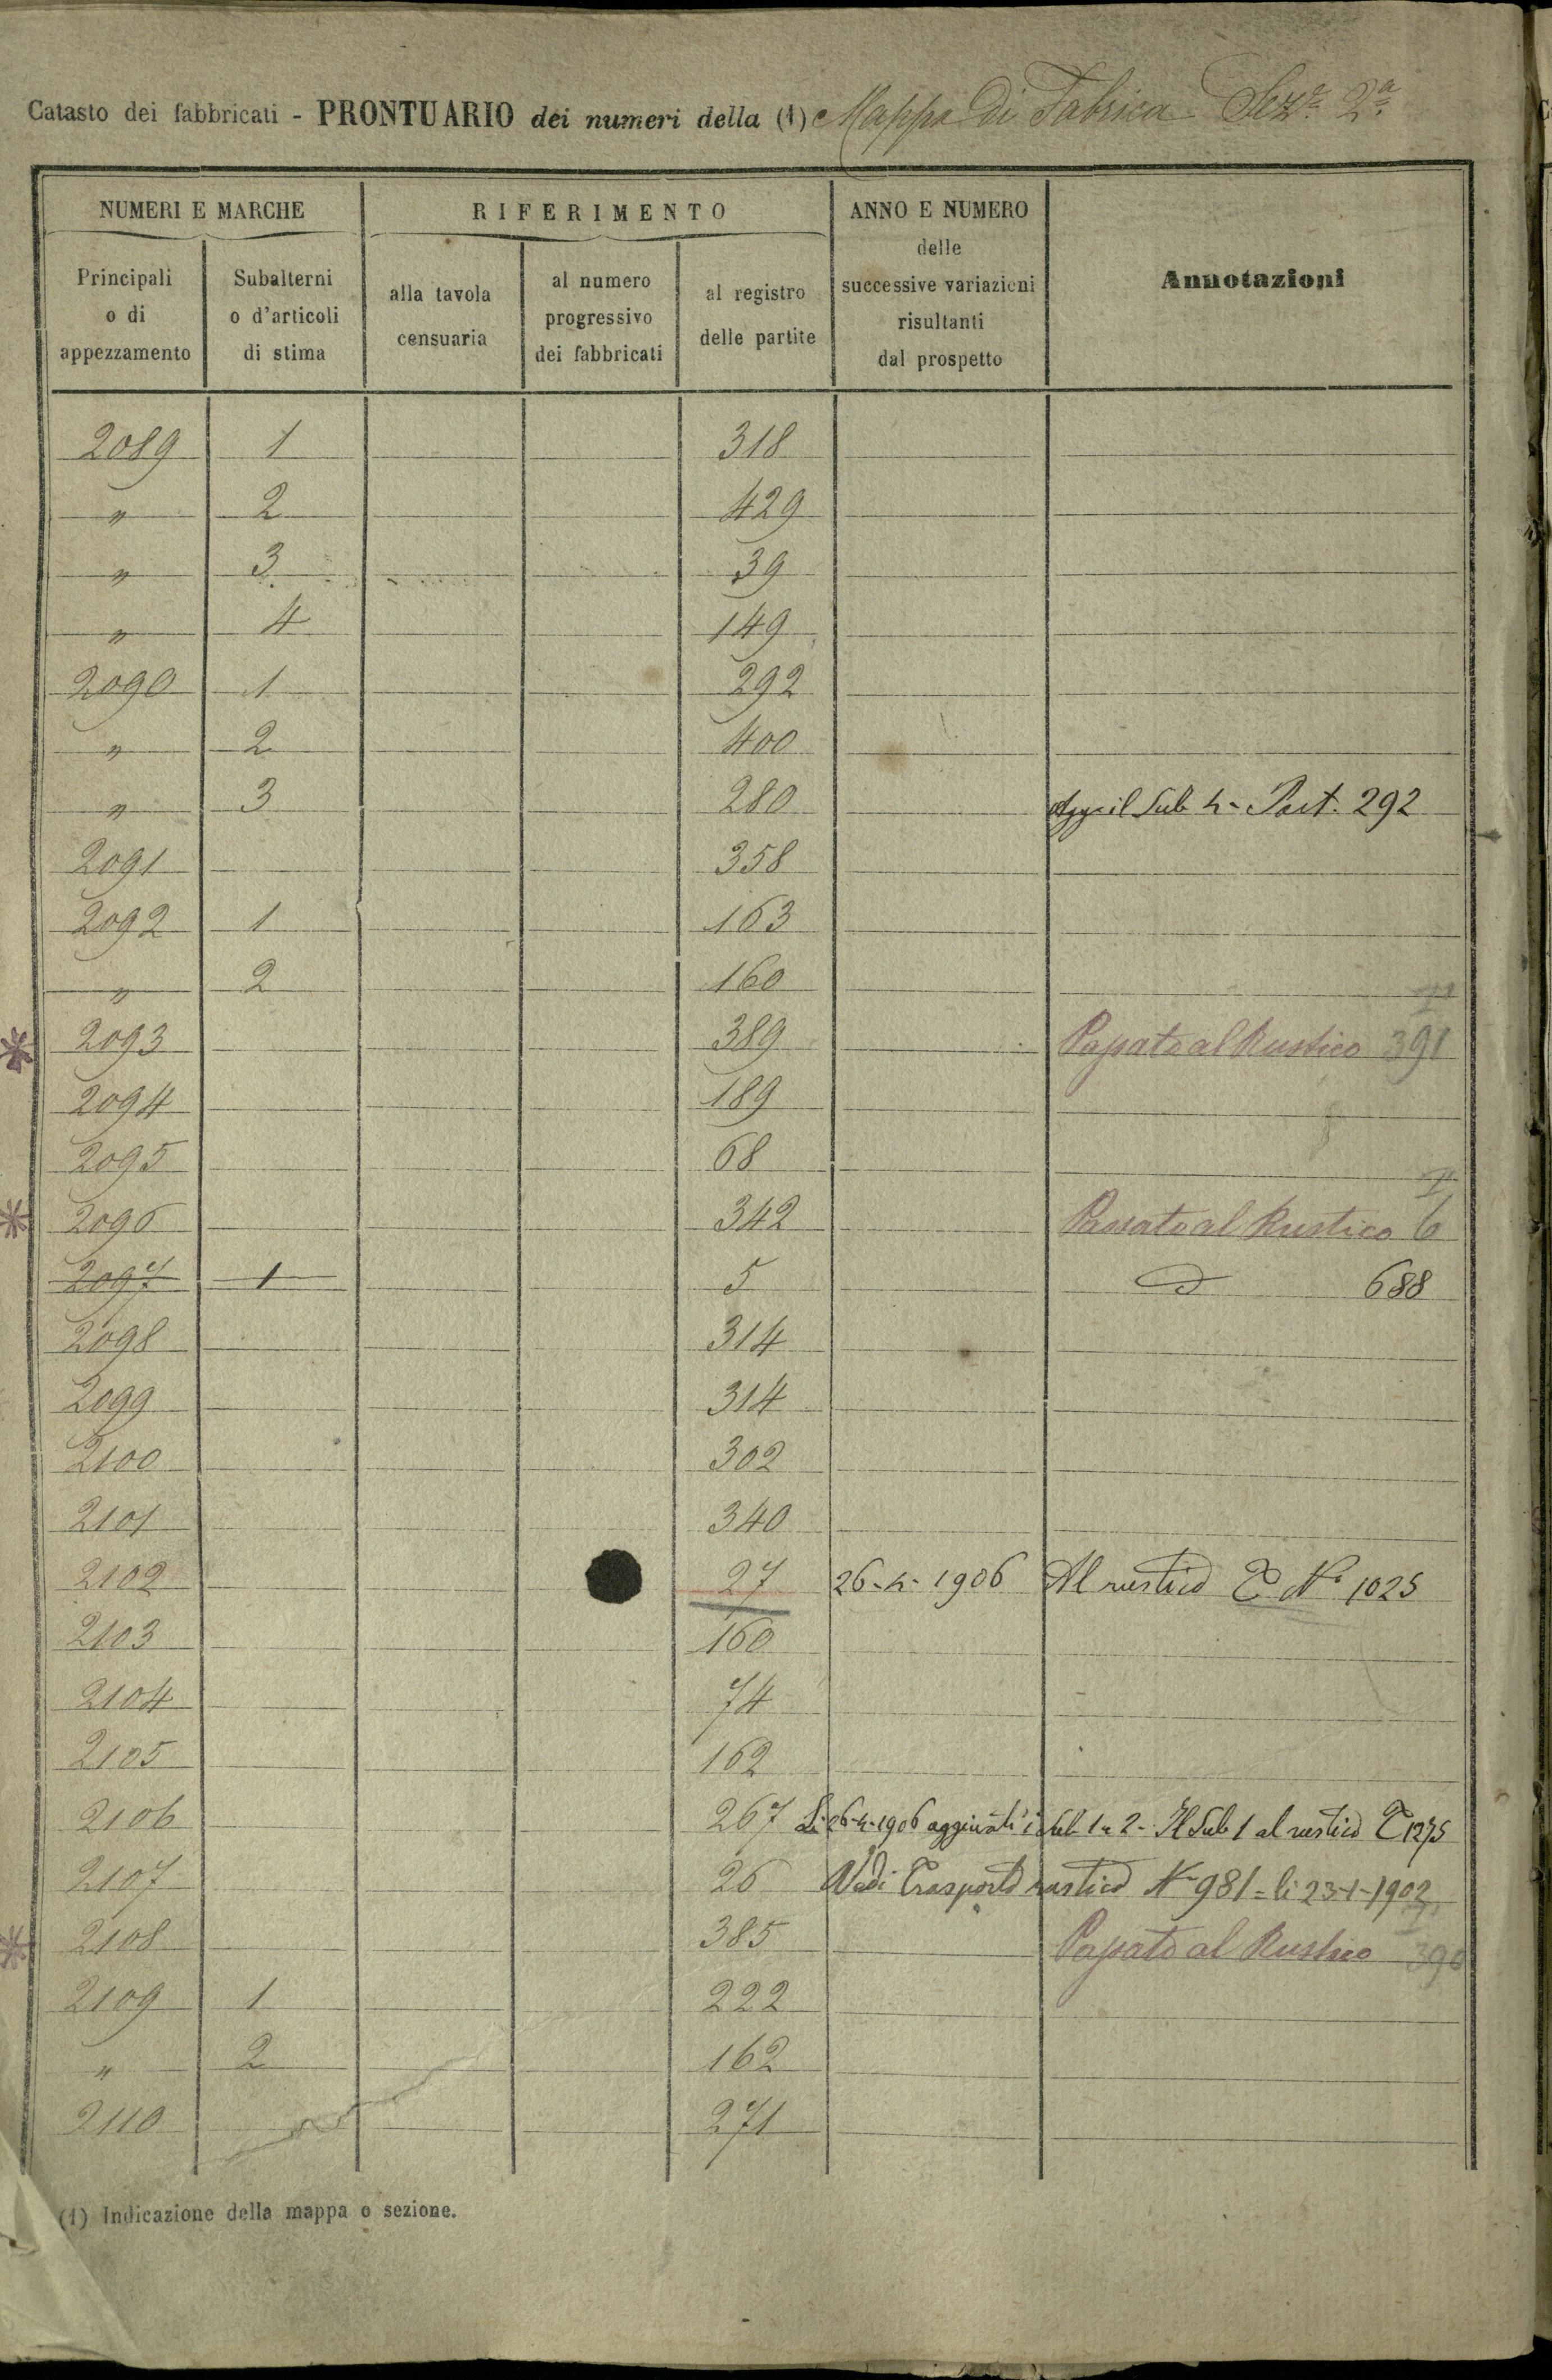 Catasto dei fabbricati - PRONTUARIO dei numeri della (1) Mappa di Fabrica Sez.e 2.a
NUMERI E MARCHE
RIFERIMENTO
ANNO E NUMERO
delle
successive variazioni
risultanti
dal prospetto
Annotazioni
Principali
o di
appezzamento
Subalterni
o d'articoli
di stima
alla tavola
censuaria
al numero
progressivo
dei fabbricati
al registro
delle partite
2089 1 318
" 2 429
" 3 39
" 4 149
2090 1 292
" 2 400
" 3 280 Agg. il Sub 4 - Part. 292
2091 358
2092 1 163
" 2 160
2093 389 Passato al Rustico 391
2094 189
2095 68
2096 342 Passato al Rustico 6
2097 1 5 688
2098 314
2099 314
2100 302
2101 340
2102 27 26-4-1906 Al rustico T N° 1025
2103 160
2104 74
2105 162
2106 267 Li 26-4-1906 aggiunti i Sub 1 e 2 - Il Sub 1 al rustico T 1275
2107 26 Vedi Trasporto rustico N° 981 = li 23-1-1902
2108 385 Passato al Rustico 390
2109 1 222
" 2 162
2110 271
(1) Indicazione della mappa o sezione.